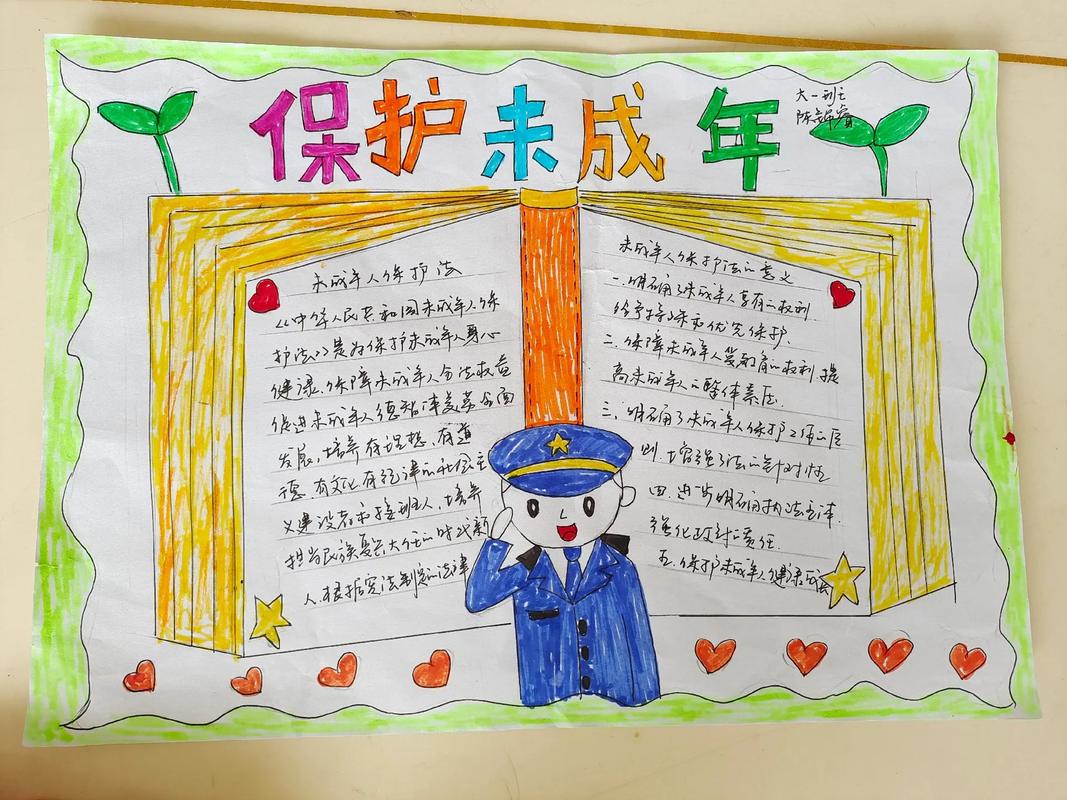 保护未成年
大一班
陈
未成年人保护法
《中华人民共和国未成年人保
护法》是为保护未成年人身心
健康、保障未成年人合法权益
促进未成年人德智体美劳全面
发展,培养有理想、有道
德、有文化、有纪律的社会主
义建设者和接班人,培养
担当民族复兴大任的时代新
人,根据宪法制定的法律
未成年人保护法的意义
一.明确了未成年人享有的权利
给予特殊和优先保护.
二.保障未成年人受教育的权利,提
高未成年人的整体素压.
三.明确了未成年人保护工作的原
则.增强了法的针对性
四.进一步明确执法主体.
强化政府责任.
五.保护未成年人健康成长